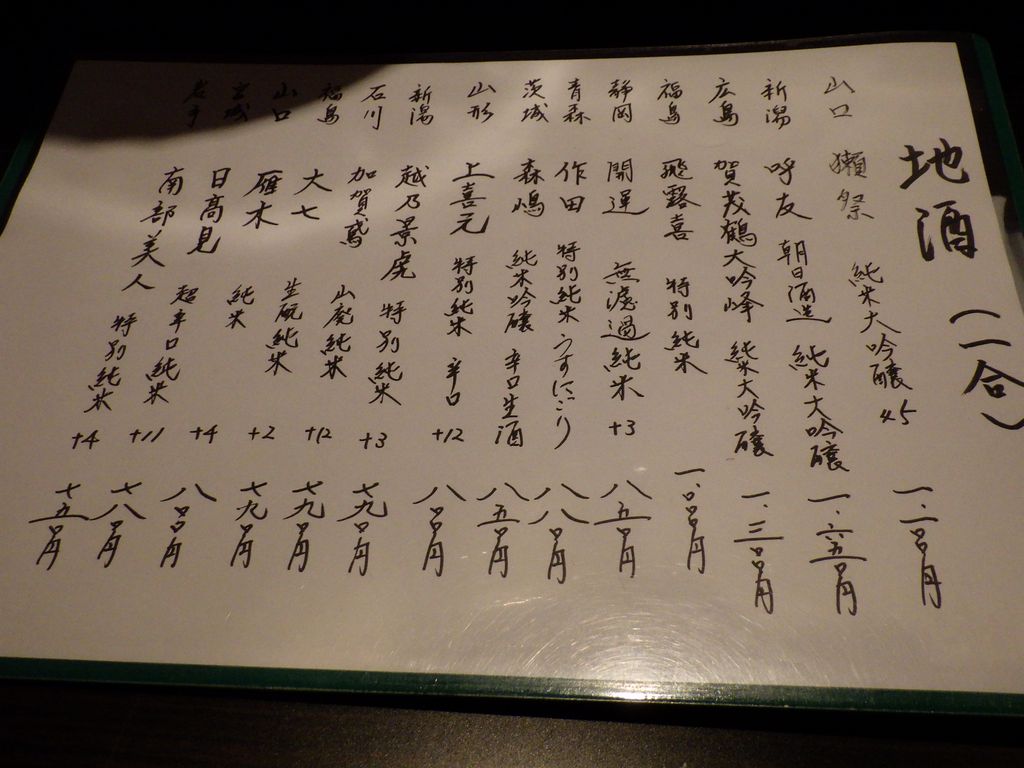 地酒 (一合)
山口 獺祭 純米大吟醸 45 一、二〇〇円
新潟 呼友 朝日酒造 純米大吟醸 一、六五〇円
広島 賀茂鶴 大吟峰 純米大吟醸 一、三〇〇円
福島 飛露喜 特別純米 一、〇〇〇円
静岡 開運 無濾過純米 +3 八五〇円
青森 作田 特別純米 うすにごり 八八〇円
茨城 森嶋 純米吟醸 辛口生酒 八五〇円
山形 上喜元 特別純米 辛口 +12 八〇〇円
新潟 越乃景虎 特別純米 +3 七九〇円
石川 加賀鳶 山廃純米 +12 七九〇円
福島 大七 生酛純米 +2 七九〇円
山口 雁木 純米 +4 八〇〇円
宮城 日高見 超辛口純米 +11 七八〇円
岩手 南部美人 特別純米 +4 七五〇円